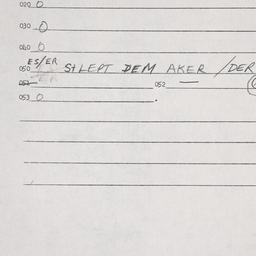 020 0
030 0
040 0
050 ES/ER SHLEPT DEM AKER /DER
051 052
053 0 .